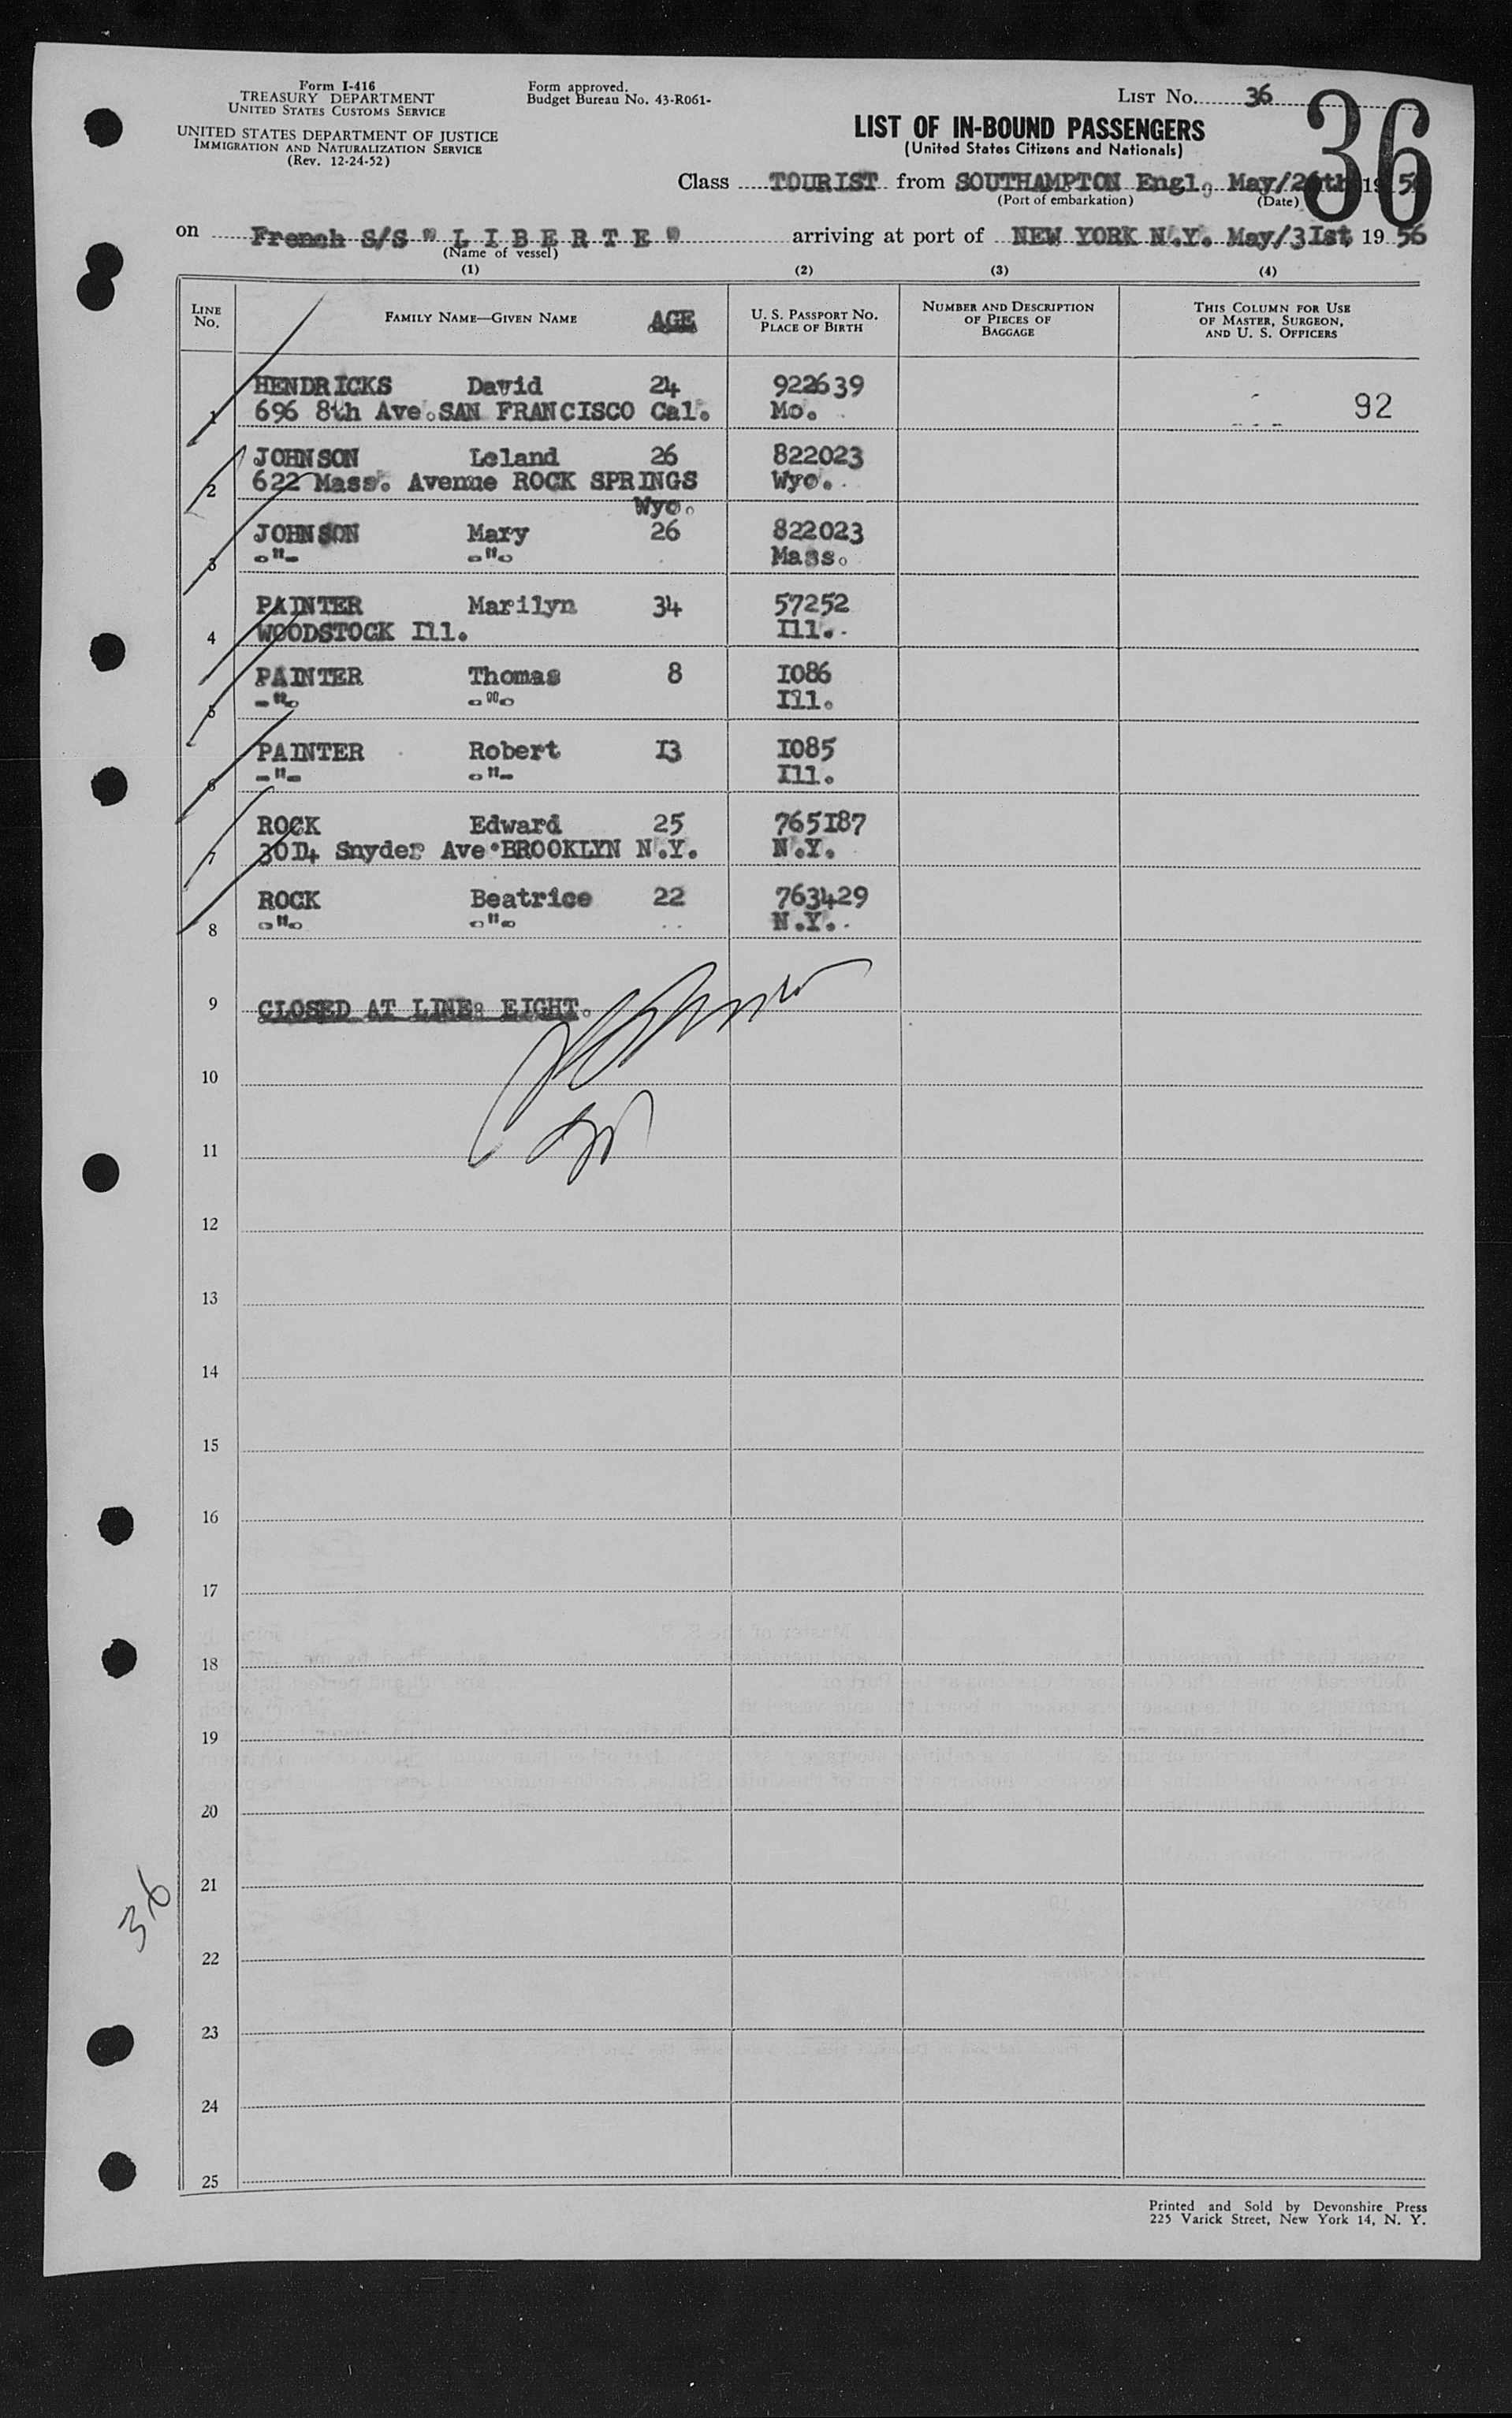 Form I-416
TREASURY DEPARTMENT
UNITED STATES CUSTOMS SERVICE
UNITED STATES DEPARTMENT OF JUSTICE
IMMIGRATION AND NATURALIZATION SERVICE
(Rev. 12-24-52)
Form approved.
Budget Bureau No. 43-R061-
LIST NO. 36
36
LIST OF IN-BOUND PASSENGERS
(United States Citizens and Nationals)
Class TOURIST from SOUTHAMPTON Engl. May/26th 195
(Port of embarkation) (Date)
on French S/S "L I B E R T E" arriving at port of NEW YORK N.Y. May/3Ist, 1956
(Name of vessel)
(1) (2) (3) (4)
LINE NO. FAMILY NAME—GIVEN NAME AGE U. S. PASSPORT NO. PLACE OF BIRTH NUMBER AND DESCRIPTION OF PIECES OF BAGGAGE THIS COLUMN FOR USE OF MASTER, SURGEON, AND U. S. OFFICERS
HENDRICKS David 24 922639
1 696 8th Ave.SAN FRANCISCO Cal. Mo. 92
JOHNSON Leland 26 822023
2 622 Mass. Avenue ROCK SPRINGS Wyo.
Wyo.
JOHNSON Mary 26 822023
3 -"- -"- Mass.
PAINTER Marilyn 34 57252
4 WOODSTOCK Ill. Ill.
PAINTER Thomas 8 I086
5 -"- -"- Ill.
PAINTER Robert I3 I085
6 -"- -"- Ill.
ROCK Edward 25 765I87
7 30I4 Snyder Ave.BROOKLYN N.Y. N.Y.
ROCK Beatrice 22 763429
8 -"- -"- N.Y.
9 CLOSED AT LINE: EIGHT.
10
11
12
13
14
15
16
17
18
19
20
21
36
22
23
24
25
Printed and Sold by Devonshire Press
225 Varick Street, New York 14, N. Y.